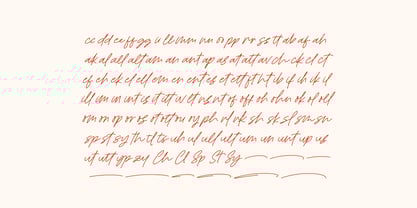 cc dd ee ff gg ii ll mm nn oo pp rr ss tt ab af ah
ak al all alt am an ant ap as at att av ch ck cl ct
ef eh ek el ell em en ent es et ett ft ht ib if ih ik il
ill im in int is it itt iv lt ns nt of off oh ohn ok ol oll
om on op or os ot ott ov oy ph rl rk sh sk sl sm sn
sp st sy th tl ts uh ul ull ult um un unt up us
ut utt yp zy Ch Cl Sp St Sy